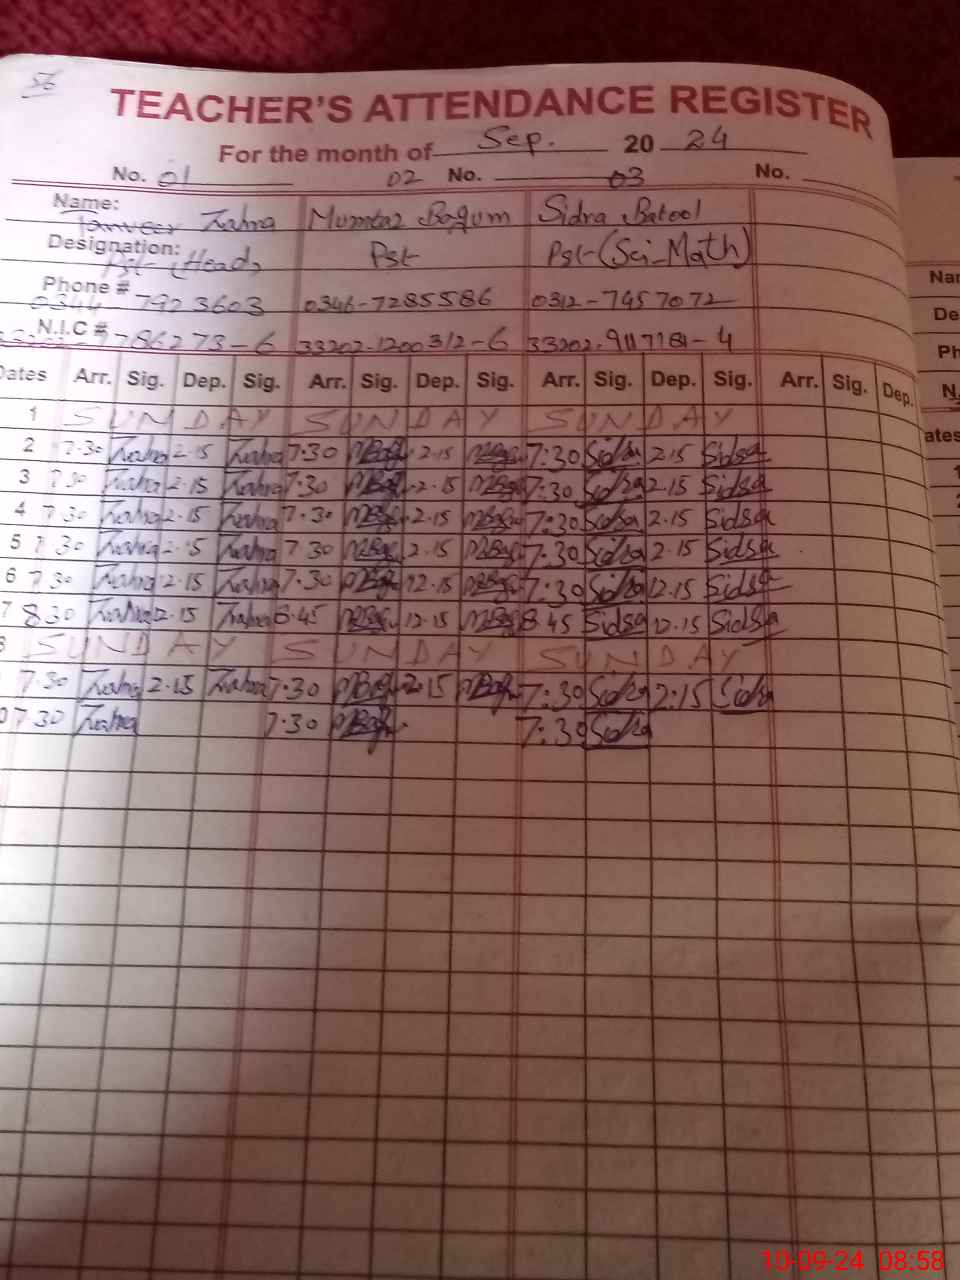 56
TEACHER'S ATTENDANCE REGISTER
For the month of Sep. 20 24
No. 01 02 No. 03 No.
Name: Tanveer Zahra Mumtaz Begum Sidra Batool
Designation: Pst (Head) Pst Pst-(Sci-Math)
Phone # 0344 7923603 0346-7285586 0312-7457072
N.I.C # 786273-6 33202-1200312-6 33202-9117181-4
Dates Arr. Sig. Dep. Sig. Arr. Sig. Dep. Sig. Arr. Sig. Dep. Sig. Arr. Sig. Dep.
1 SUNDAY SUNDAY SUNDAY
2 7.30 Zahra 2.15 Zahra 7.30 MBeg 2.15 MBeg 7:30 Sidra 2.15 Sidra
3 7 30 Zahra 2.15 Zahra 7.30 MBeg 2.15 MBeg 7:30 Sidra 2.15 Sidra
4 7 30 Zahra 2.15 Zahra 7.30 MBeg 2.15 MBeg 7:30 Sidra 2.15 Sidra
5 7 30 Zahra 2.15 Zahra 7.30 MBeg 2.15 MBeg 7:30 Sidra 2.15 Sidra
6 7 30 Zahra 12.15 Zahra 7.30 MBeg 12.15 MBeg 7:30 Sidra 12.15 Sidra
7 8 30 Zahra 12.15 Zahra 8.45 MBeg 12.15 MBeg 8.45 Sidra 12.15 Sidra
SUNDAY SUNDAY SUNDAY
7.30 Zahra 2.15 Zahra 7.30 MBeg 2.15 MBeg 7:30 Sidra 2:15 Sidra
0 7 30 Zahra 7.30 MBeg 7:30 Sidra
Nar
De
Ph
N.
ates
10-09-24 08:58